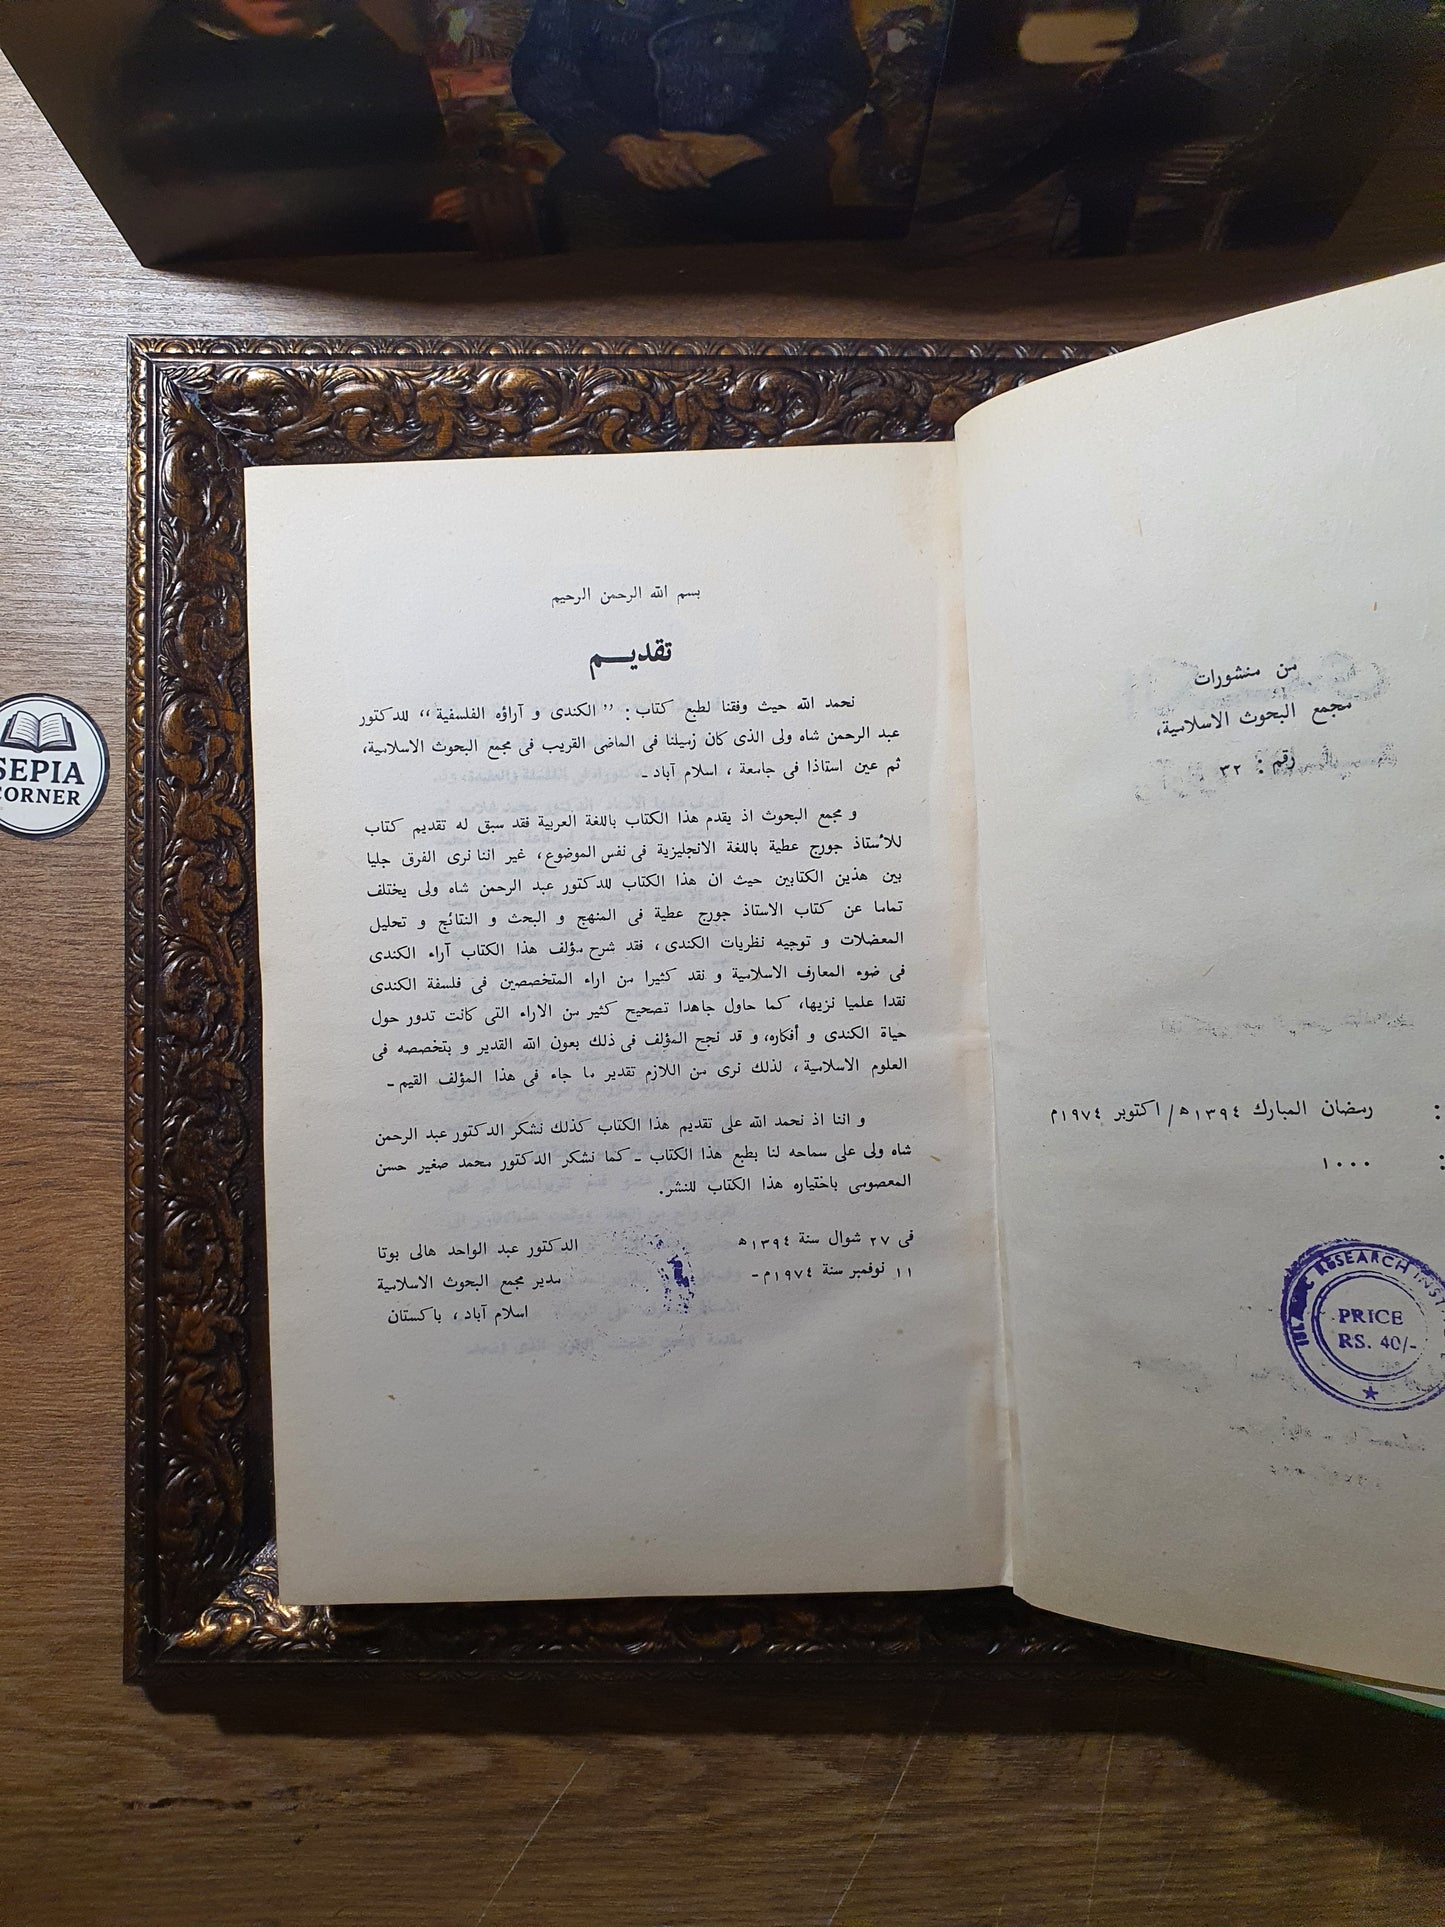 من منشورات
مجمع البحوث الاسلامية،
رقم : ٣٢
: رمضان المبارك ١٣٩٤ھ/ اكتوبر ١٩٧٤م
: ١٠٠٠
ISLAMIC RESEARCH
PRICE
RS. 40/-
بسم الله الرحمن الرحيم
تقديــــم
نحمد الله حيث وفقنا لطبع كتاب : ”الكندى و آراؤه الفلسفية“ للدكتور
عبد الرحمن شاه ولى الذى كان زميلنا فى الماضى القريب فى مجمع البحوث الاسلامية،
ثم عين استاذا فى جامعة ، اسلام آباد ـ
و مجمع البحوث اذ يقدم هذا الكتاب باللغة العربية فقد سبق له تقديم كتاب
للأستاذ جورج عطية باللغة الانجليزية فى نفس الموضوع، غير اننا نرى الفرق جليا
بين هذين الكتابين حيث ان هذا الكتاب للدكتور عبد الرحمن شاه ولى يختلف
تماما عن كتاب الاستاذ جورج عطية فى المنهج و البحث و النتائج و تحليل
المعضلات و توجيه نظريات الكندى ، فقد شرح مؤلف هذا الكتاب آراء الكندى
فى ضوء المعارف الاسلامية و نقد كثيرا من اراء المتخصصين فى فلسفة الكندى
نقدا علميا نزيها، كما حاول جاهدا تصحيح كثير من الاراء التى كانت تدور حول
حياة الكندى و أفكاره، و قد نجح المؤلف فى ذلك بعون الله القدير و بتخصصه فى
العلوم الاسلامية ، لذلك نرى من اللازم تقدير ما جاء فى هذا المؤلف القيم ـ
و اننا اذ نحمد الله على تقديم هذا الكتاب كذلك نشكر الدكتور عبد الرحمن
شاه ولى على سماحه لنا بطبع هذا الكتاب ـ كما نشكر الدكتور محمد صغير حسن
المعصومى باختياره هذا الكتاب للنشر.
فى ٢٧ شوال سنة ١٣٩٤ھ
١١ نوفمبر سنة ١٩٧٤م-
الدكتور عبد الواحد هالى بوتا
مدير مجمع البحوث الاسلامية
اسلام آباد ، باكستان
SEPIA
CORNER